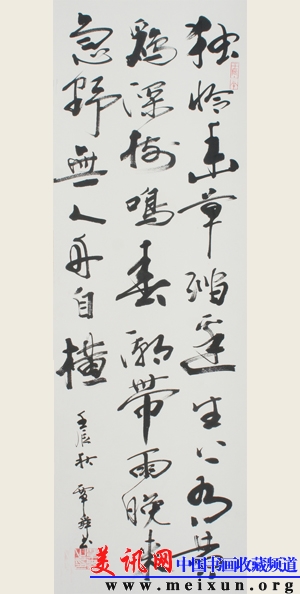 独怜幽草澗邊生上有黄
鸝深树鳴春潮帶雨晚来
急野無人舟自橫
壬辰秋 覃
美讯网 中国书画收藏频道
www.meixun.org